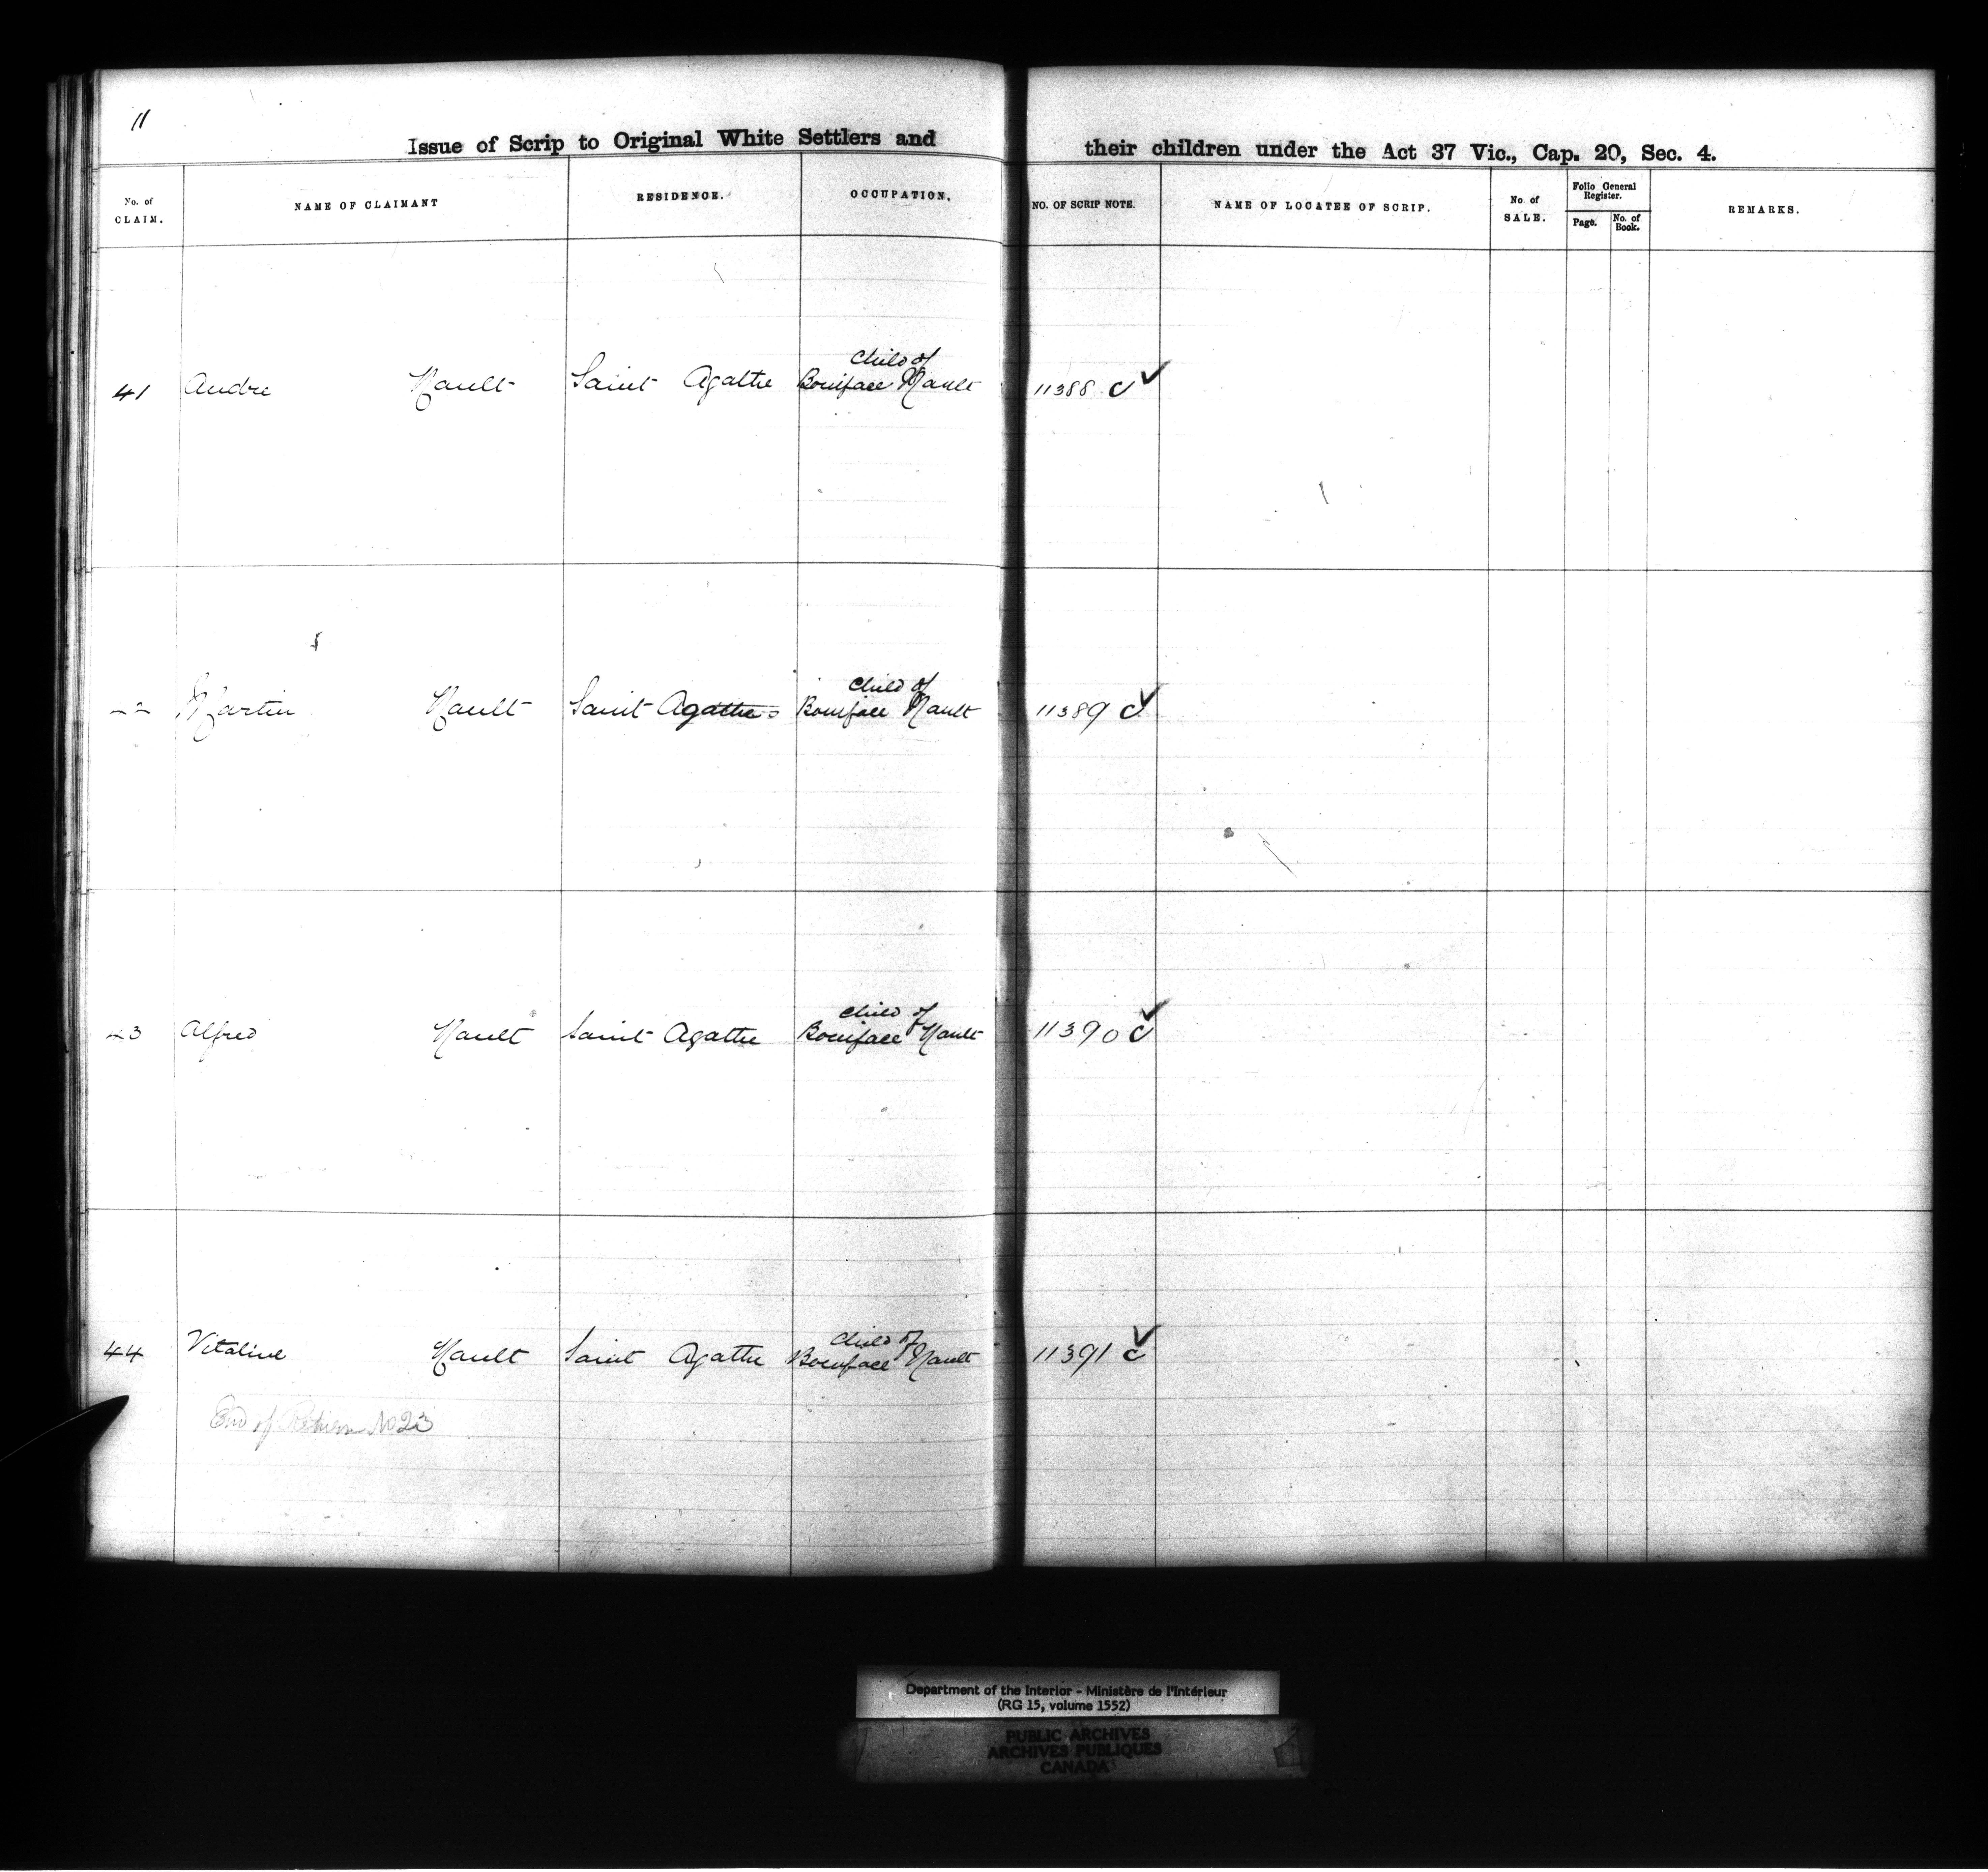 11
Issue of Scrip to Original White Settlers and their children under the Act 37 Vic., Cap. 20, Sec. 4.
No. of CLAIM. NAME OF CLAIMANT RESIDENCE. OCCUPATION. NO. OF SCRIP NOTE. NAME OF LOCATEE OF SCRIP. No. of SALE. Folio General Register. Page. No. of Book. REMARKS.
Child of
41 Andre Nault Saint Agathe Boniface Nault 11388 c ✓
Child of
Martin Nault Saint Agathe Boniface Nault 11389 c ✓
Child of
43 Alfred Nault Saint Agathe Boniface Nault 11390 c ✓
Child of
44 Vitaline Nault Saint Agathe Boniface Nault 11391 c ✓
End of Return No 23
Department of the Interior - Ministère de l'Intérieur
(RG 15, volume 1552)
PUBLIC ARCHIVES
ARCHIVES PUBLIQUES
CANADA